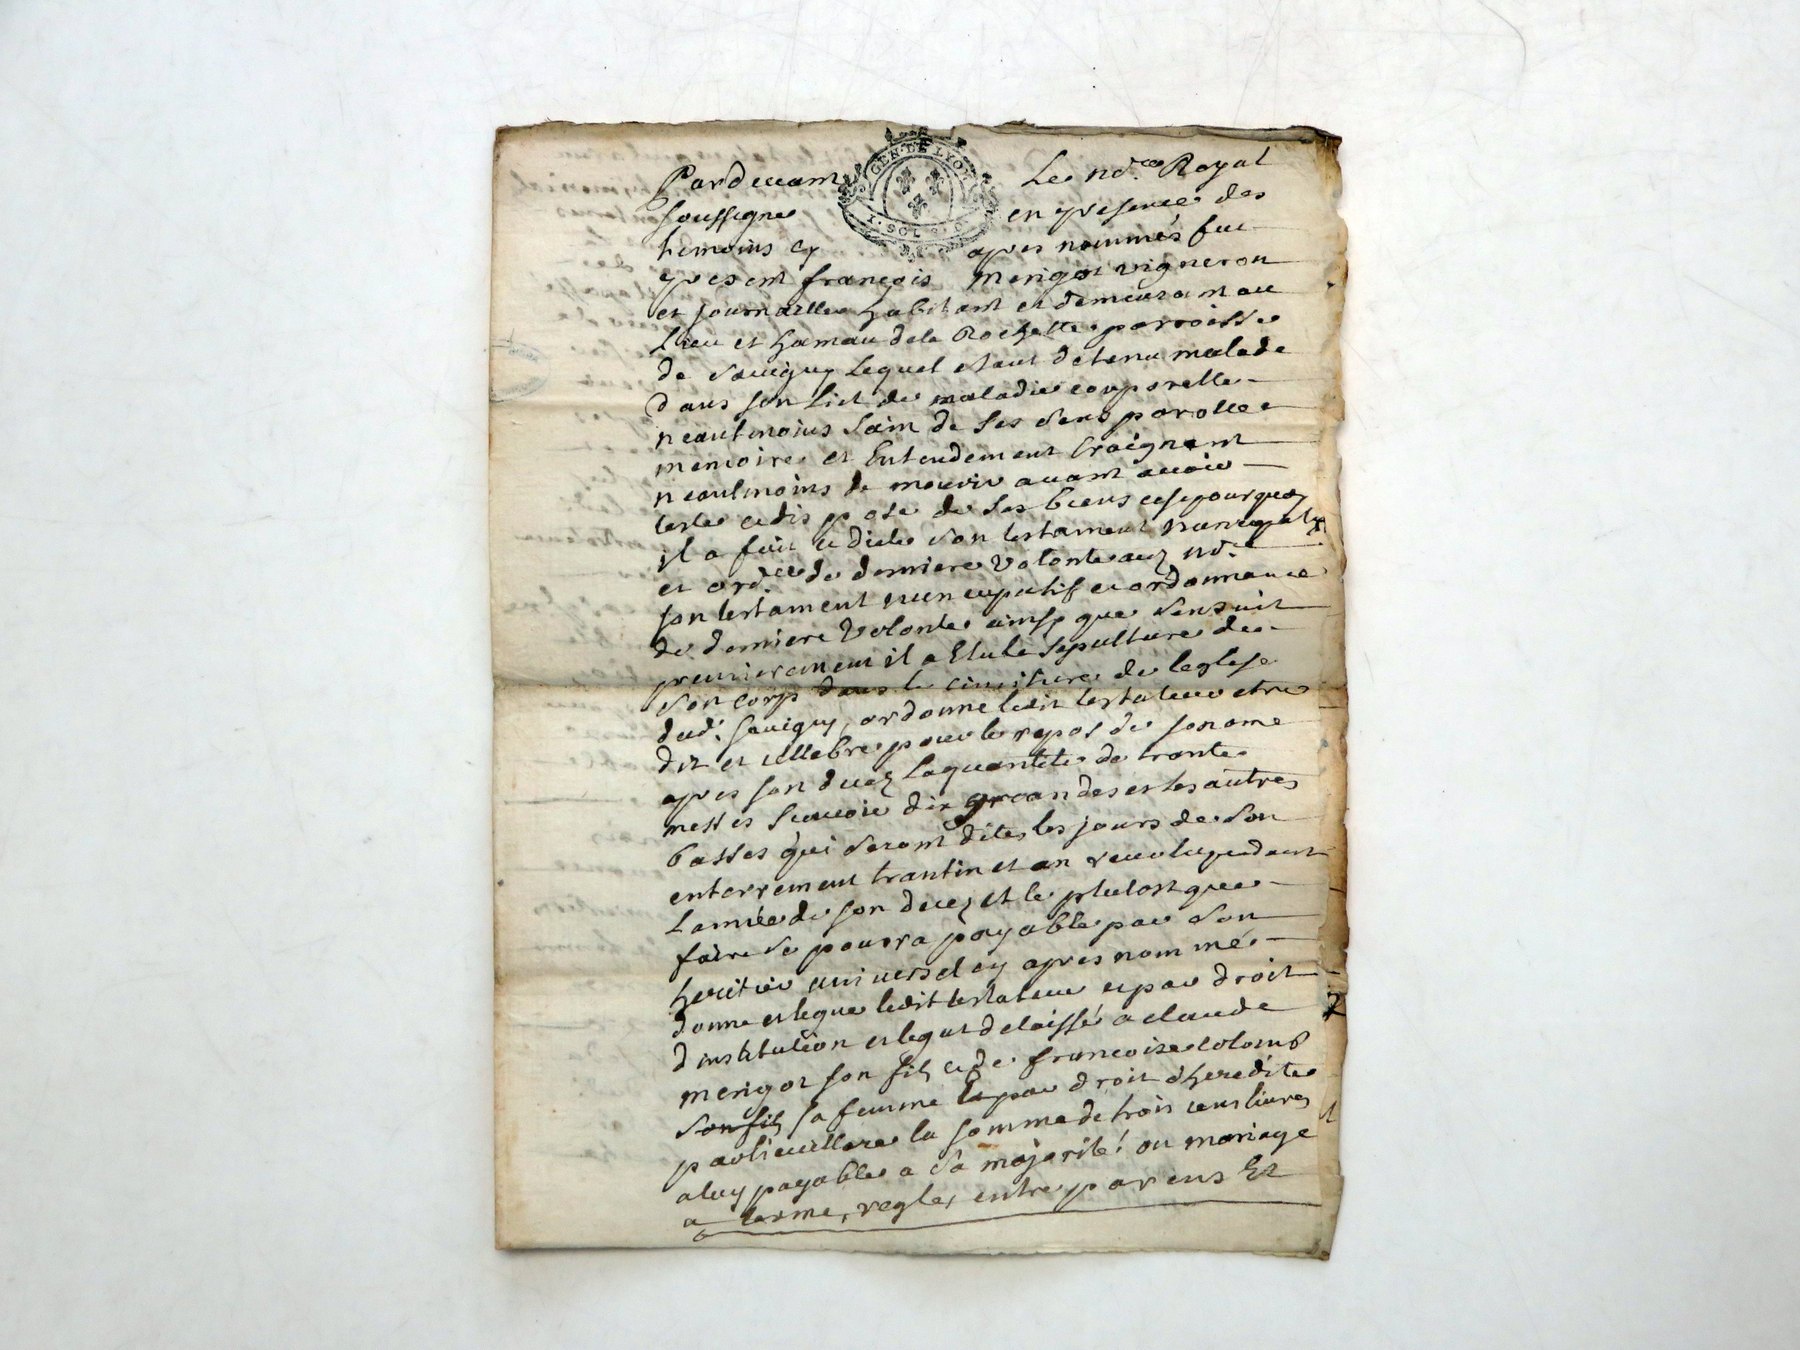 GEN. DE LYON
1. SOL
Pardevant Le no.re Royal
soussigne en presence des
temoins cy apres nommés fut
present françois merigot vigneron
et journallier habitant et demeurant au
Lieu et hamau dela Rochette parroisse
de Savigny Lequel etant detenu malade
dans son Lict de maladie corporelle
neautmoins Sain de Ses Sens parolle
memoire et Entendement Craignant
neautmoins de mourir avant avoir
teste et dispose de Ses biens cest pourquoy
il a fait et dicte Son testament nuncupatif
et ord.ce de derniere Volonte no.re
son testament nuncupatif et ordonnance
de derniere Volonte ainsy que Sensuit
premierement il a Elu la Sepulture de
Son corps dans le cimitiere de leglise
dud. Savigny, ordonne ledit testateur etre
dit et cellebre pour le repos de son ame
apres son decez La quantite de trante
messes Scavoir dix grandes et les autres
basses qui Seront dites les jours de Son
enterrement trantin et an revolu pendant
Lannée de son decez et le plutost que
faire Se poura payable par Son
heritier universel cy apres nommé
donne et legue ledit testateur et par droit
dinstitution et legat delaissé a claude
merigot son fils et de francoise colomb
Son fils sa femme et par droit dheredite
particulliere la somme de trois cens livres
a luy payable a Sa majorité ou mariage
a terme, regle, entre parens Et